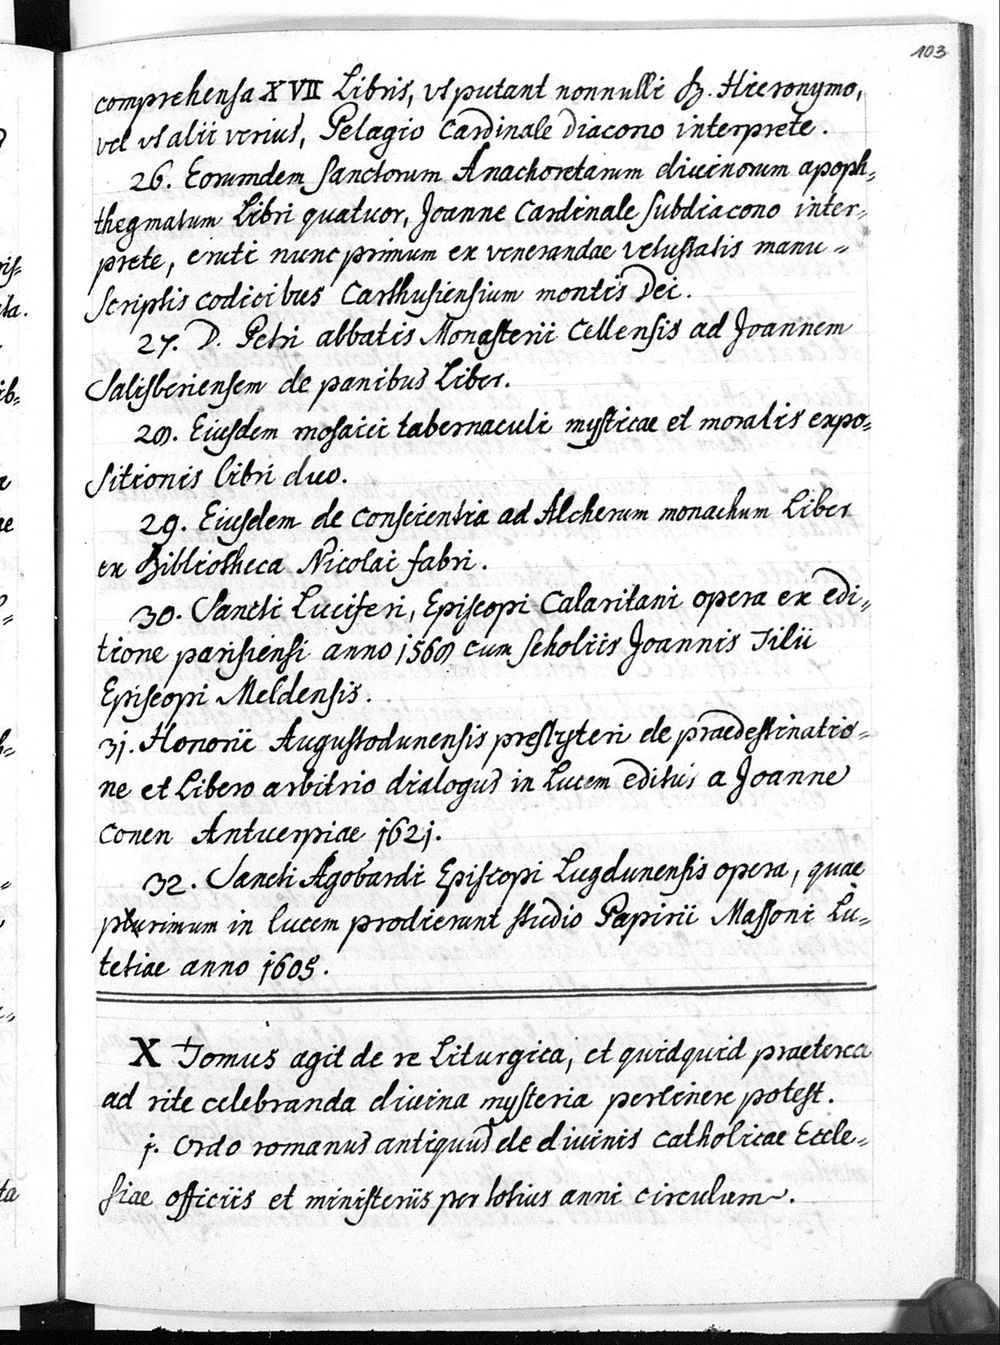 103
comprehensa XVII Libris, ut putant nonnulli B. Hieronymo,
vel ut alii verius, Pelagio Cardinale Diacono interprete.
26. Eorumdem Sanctorum Anachoretarum divinorum apoph„
thegmatum Libri quatuor, Joanne Cardinale Subdiacono inter„
prete, eruti nunc primum ex venerandae vetustatis manu„
scriptis codicibus Carthusiensium montis Dei.
27. D. Petri abbatis Monasterii Cellensis ad Joannem
Salisberiensem de panibus Liber.
28. Eiusdem mosaici tabernaculi mysticae et moralis expo„
sitionis libri duo.
29. Eiusdem de Conscientia ad Alcherum monachum Liber
ex Bibliotheca Nicolai fabri.
30. Sancti Luciferi, Episcopi Calaritani opera ex edi„
tione parisiensi anno 1568 cum Scholiis Joannis Tilii
Episcopi Meldensis.
31. Honorii Augustodunensis presbyteri de praedestinatio„
ne et Libero arbitrio dialogus in Lucem editus a Joanne
Conen Antuerpiae 1621.
32. Sancti Agobardi Episcopi Lugdunensis opera, quae
plurimum in lucem prodierunt studio Papirii Massoni Lu„
tetiae anno 1605.
X Tomus agit de re Liturgica, et quidquid praeterea
ad rite celebranda divina mysteria pertinere potest.
1. Ordo romanus antiquus de divinis Catholicae Eccle„
siae officiis et ministeriis per totius anni circulum.